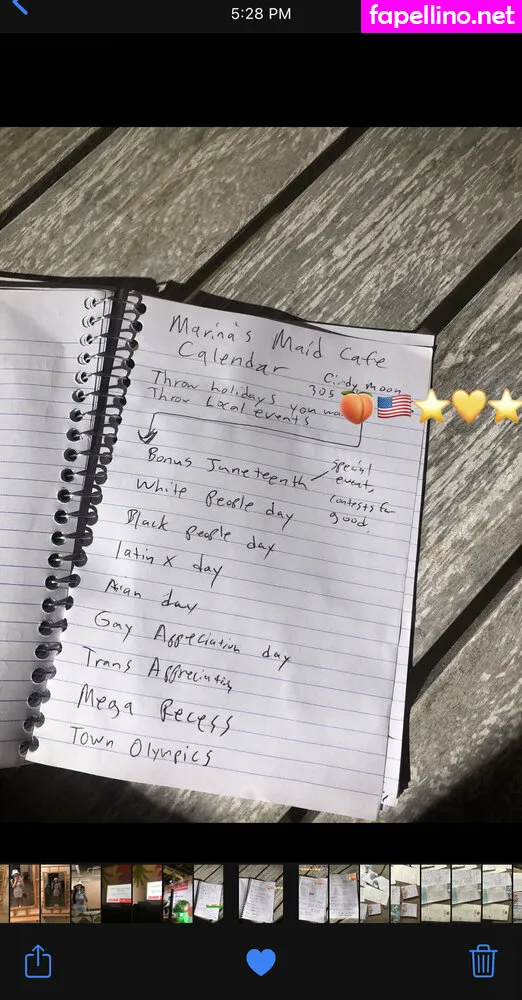 5:28 PM
fapellino.net
Marina's Maid Cafe
Calendar
Cindy moon
305
Throw holidays you
Throw Local events
Bonus Juneteenth
special
event,
contests for
good
White people day
Black people day
latin x day
Asian day
Gay Appreciation day
Trans Appreciation
Mega Recess
Town Olympics